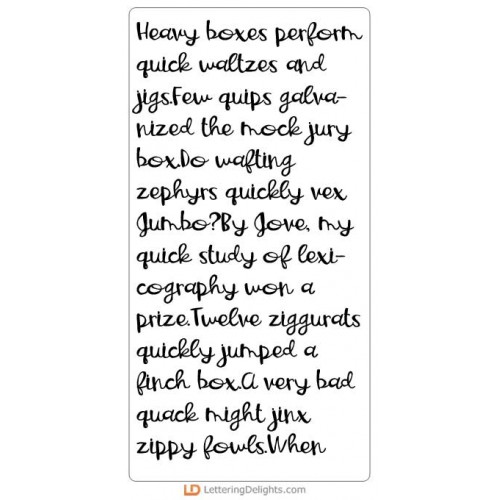 Heavy boxes perform
quick waltzes and
jigs.Few quips galva-
nized the mock jury
box.Do wafting
zephyrs quickly vex
Jumbo?By Jove, my
quick study of lexi-
cography won a
prize.Twelve ziggurats
quickly jumped a
finch box.A very bad
quack might jinx
zippy fowls.When
LD LetteringDelights.com